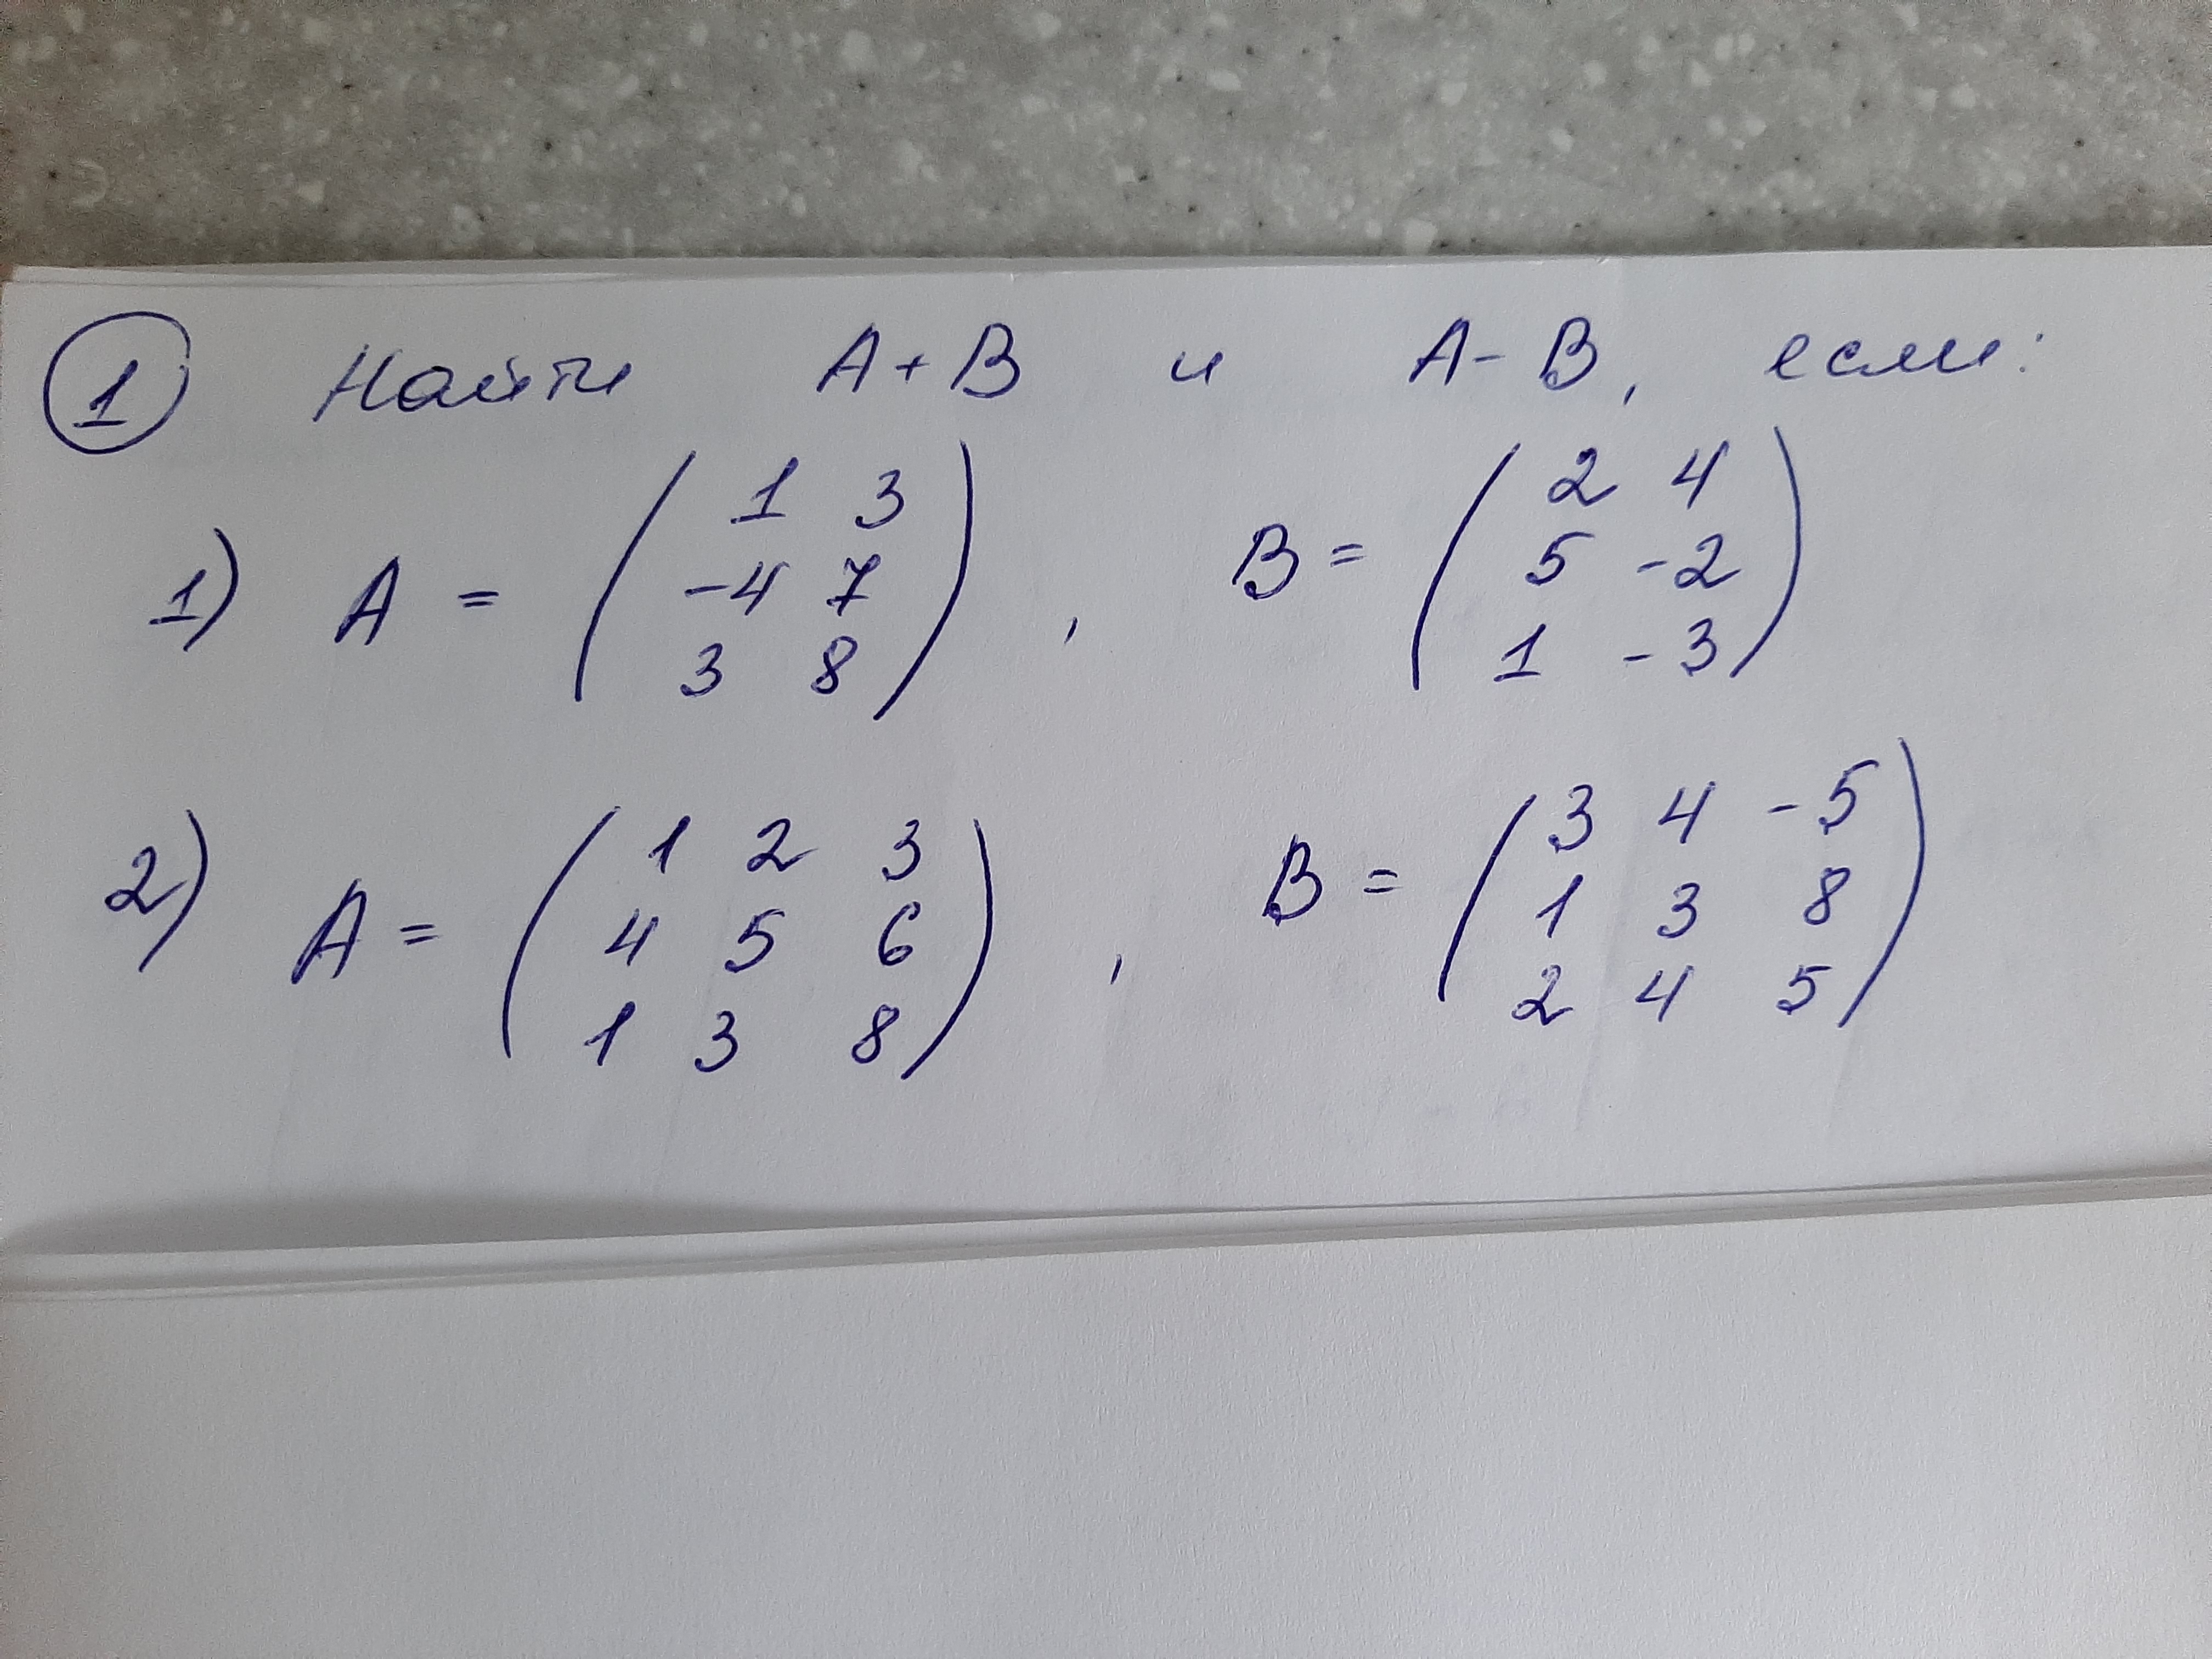 1 Найти A+B и A-B, если:
1) A = ( 1 3
-4 7
3 8 ) , B = ( 2 4
5 -2
1 -3 )
2) A = ( 1 2 3
4 5 6
1 3 8 ) , B = ( 3 4 -5
1 3 8
2 4 5 )